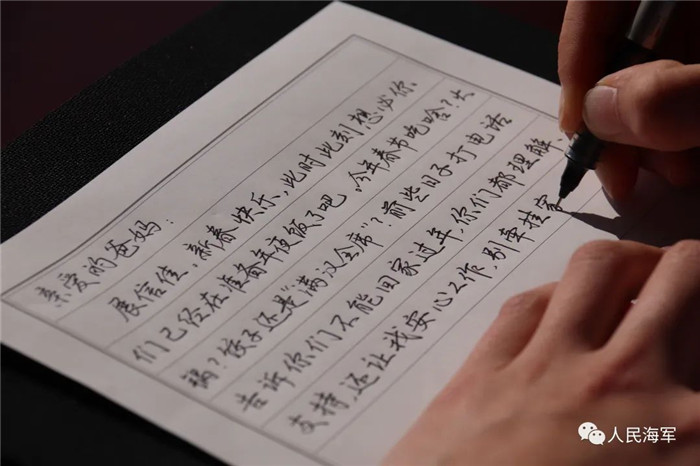 亲爱的爸妈：
展信佳，新春快乐，此时此刻想必你
们已经在准备年夜饭了吧，今年春节吃啥？火
锅？饺子还是“满汉全席”？前些日子打电话
告诉你们不能回家过年，你们都理解、
支持，还让我安心工作，别牵挂家
人民海军